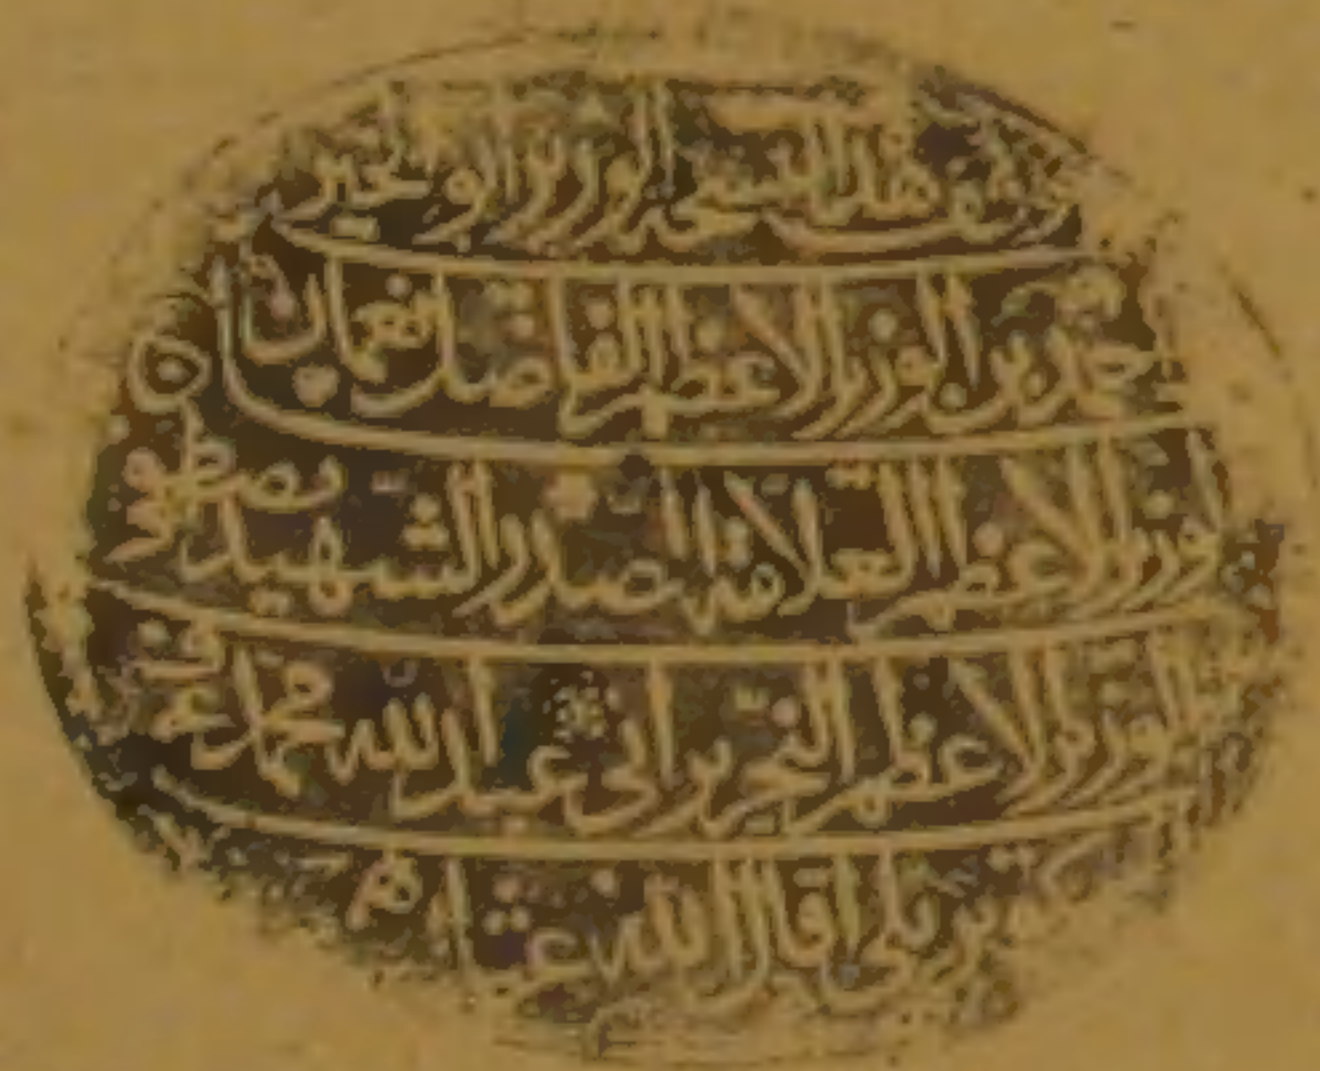 وقف هذا النسخة الوزير ابو الخير
احمد بن الوزير الاعظم الفاضل نعمان بن
الوزير الاعظم العلامة الصدر الشهيد مصطفى
الوزير الاعظم النحرير ابي عبد الله محمد عرف
بكوبريلي اقال الله عثارهم